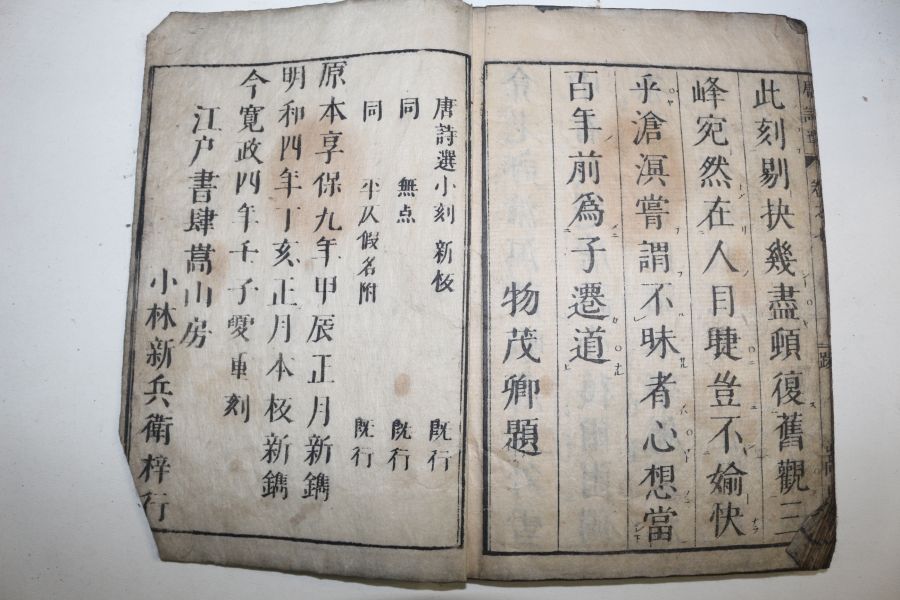 此刻剔抉幾盡頓復舊觀三
峰宛然在人目睫豈不愉快
乎滄溟嘗謂不昧者心想當
百年前爲子遷道
物茂卿題
唐詩選小刻 新板 既行
同 無点 既行
同 平仄假名附 既行
原本享保九年甲辰正月新鐫
明和四年丁亥正月本板新鐫
今寛政四年壬子夏重刻
江户書肆嵩山房
小林新兵衛梓行